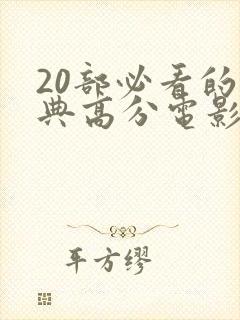 20部必看的
典高分电影
平方缪